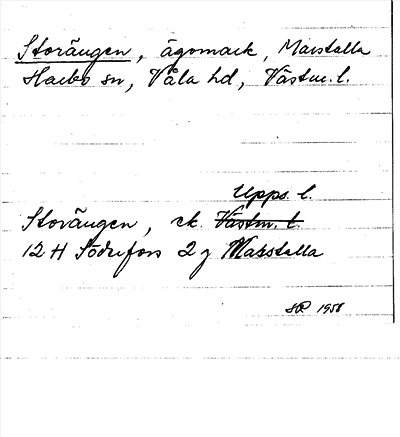 Storängen, ägomark, Marstalla
Harbo sn, Våla hd, Västm. l.
Upps. l.
Storängen, ek. Västm. l.
12 H Söderfors 2 g Marstalla
1958